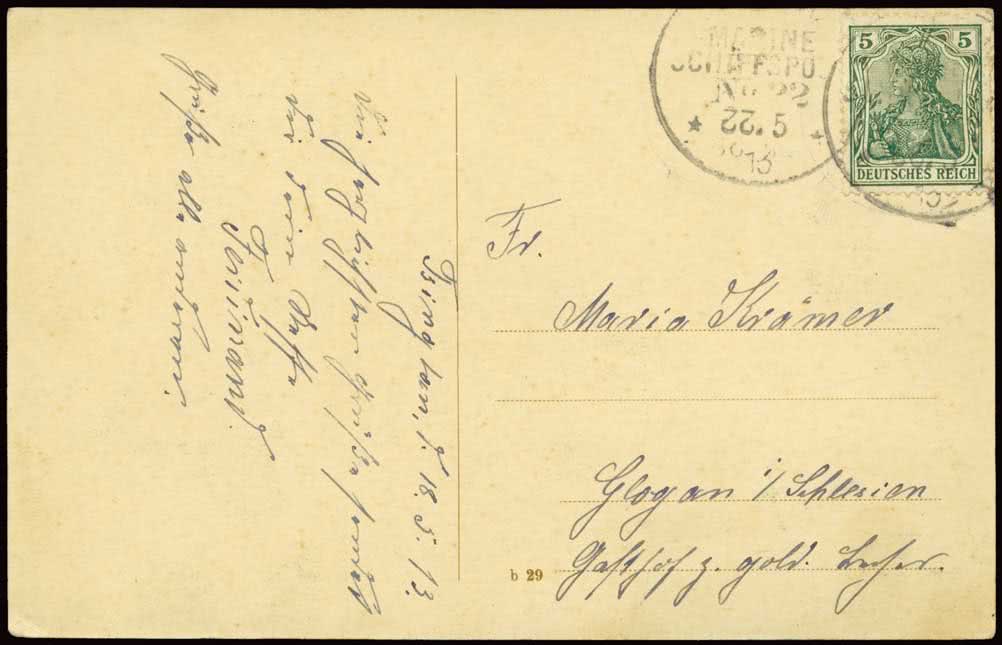 MARINE
SCHIFFSPO
No 22
22.5
13
5 5
DEUTSCHES REICH
Tsingtau, d. 18.5.13.
Die herzlichsten Grüße sendet
Dir Dein
Ferdinand
Grüße alle
Fr.
Maria Krämer
Glogau i/Schlesien
Gasthof z. gold.
b 29